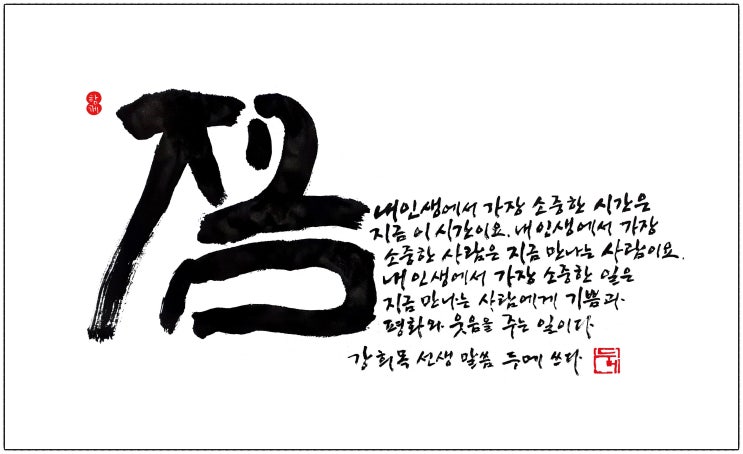 지금
내 인생에서 가장 소중한 시간은
지금 이 시간이요. 내 인생에서 가장
소중한 사람은 지금 만나는 사람이요.
내 인생에서 가장 소중한 일은
지금 만나는 사람에게 기쁨과
평화와 웃음을 주는 일이다
강희목 선생 말씀 두메 쓰다
두메